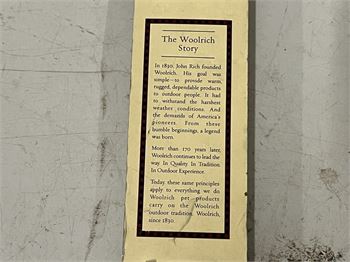 The Woolrich
Story
In 1830, John Rich founded
Woolrich. His goal was
simple—to provide warm,
rugged, dependable products
to outdoor people. It had
to withstand the harshest
weather conditions. And
the demands of America's
pioneers. From these
humble beginnings, a legend
was born.
More than 170 years later,
Woolrich continues to lead the
way. In Quality. In Tradition.
In Outdoor Experience.
Today, these same principles
apply to everything we do
Woolrich pet products
carry on the Woolrich
outdoor tradition. Woolrich,
since 1830.